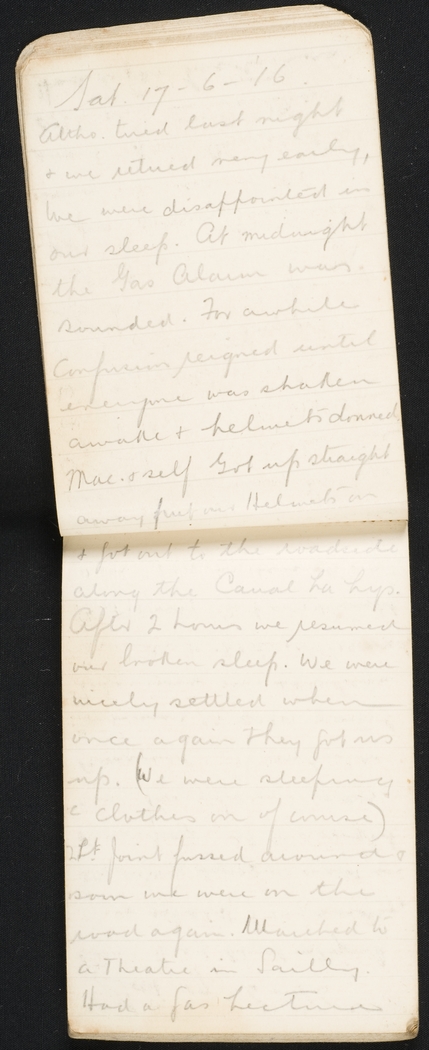 Sat. 17-6-'16.
Altho. tired last night
& we retired very early,
we were disappointed in
our sleep. At midnight
the Gas Alarm was
sounded. For awhile
Confusion reigned until
everyone was shaken
awake & helmets donned
Mac. & self Got up straight
away put our Helmets on
& got out to the roadside
along the Canal La Lys.
After 2 hours we resumed
our broken sleep. We were
nicely settled when
once again they got us
up. (We were sleeping
c clothes on of course)
2Lt Joint fussed around &
soon we were on the
road again. Marched to
a Theatre in Sailly.
Had a Gas Lecture